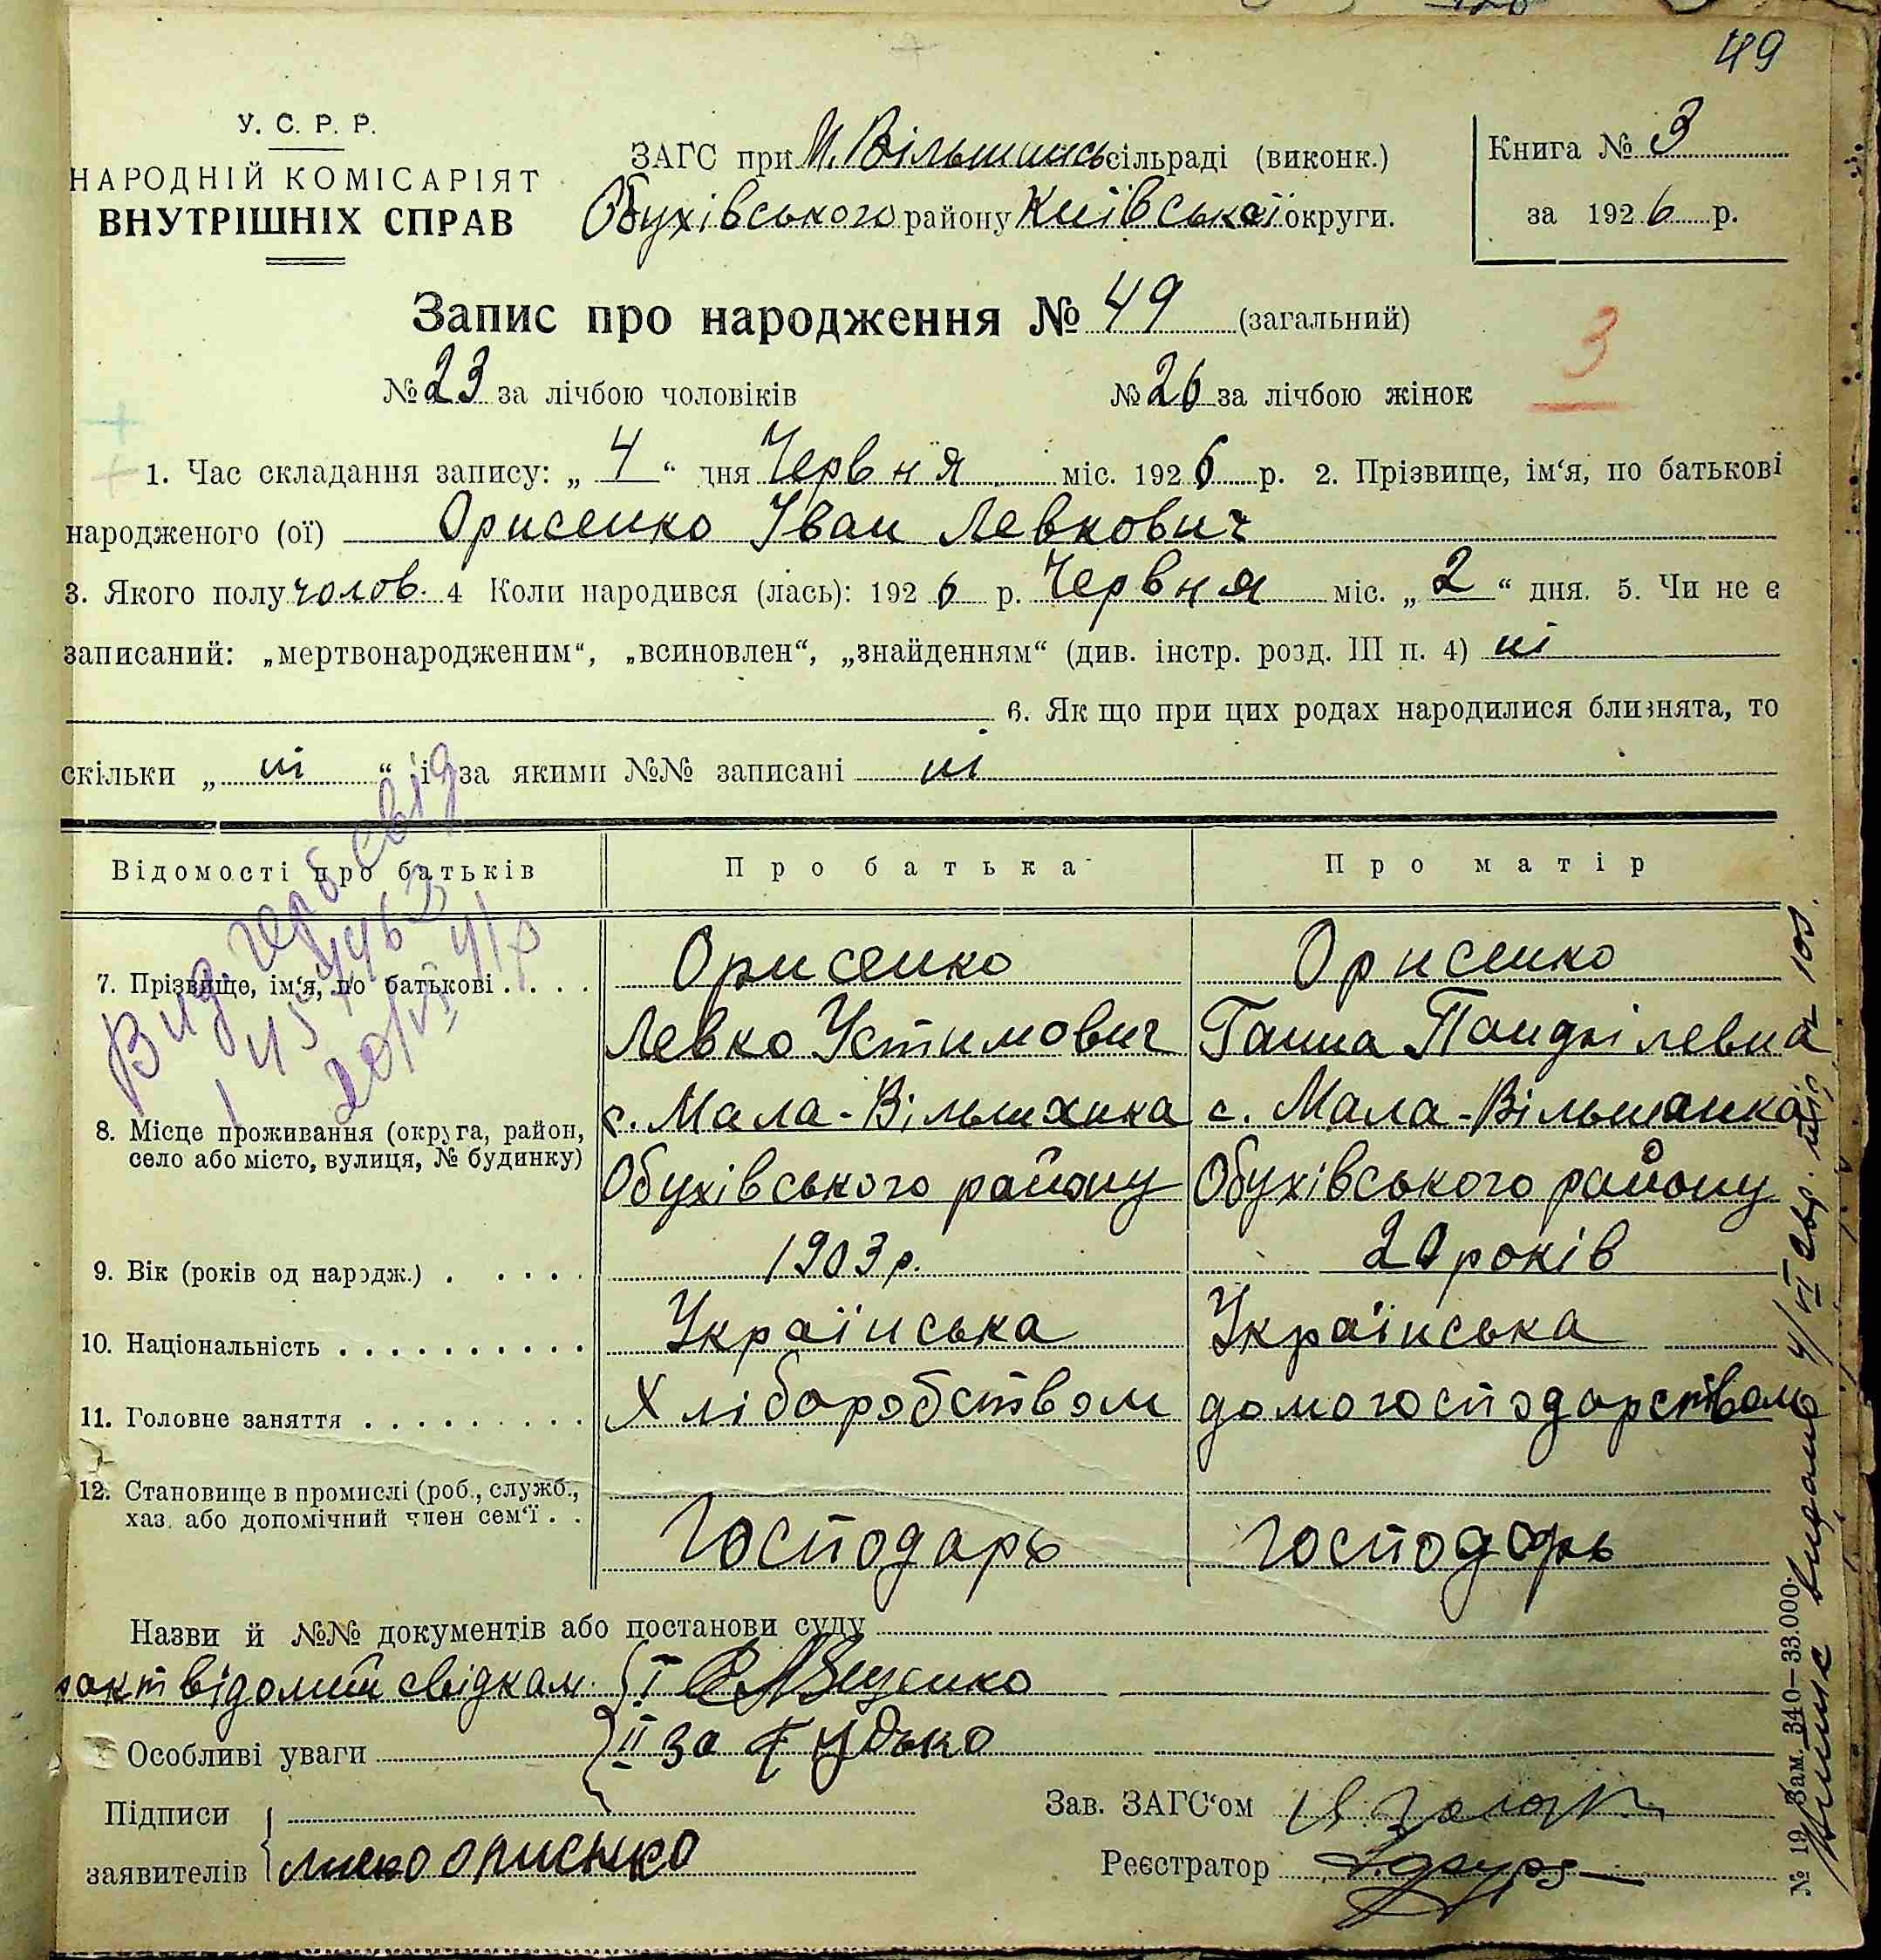 49
У. С. Р. Р.
НАРОДНІЙ КОМІСАРІЯТ
ВНУТРІШНІХ СПРАВ
ЗАГС при М. Вільшансь сільраді (виконк.)
Обухівського району Київської округи.
Книга № 3
за 1926 р.
Запис про народження № 49 (загальний)
3
№ 23 за лічбою чоловіків № 26 за лічбою жінок
1. Час складання запису: „ 4 “ дня Червня міс. 1926 р. 2. Прізвище, ім‘я, по батькові
народженого (ої) Орисенко Іван Левкович
3. Якого полу чолов. 4 Коли народився (лась): 1926 р. Червня міс. „ 2 “ дня. 5. Чи не є
записаний: „мертвонародженим“, „всиновлен“, „знайденням“ (див. інстр. розд. III п. 4) ні
6. Як що при цих родах народилися близнята, то
скільки „ ні “ і за якими №№ записані ні
Відомості про батьків Про батька Про матір
7. Прізвище, ім‘я, по батькові . . . . Орисенко Орисенко
Левко Устимович Ганна Пандзілевна
8. Місце проживання (округа, район, с. Мала-Вільшанка с. Мала-Вільшанка
село або місто, вулиця, № будинку) Обухівського району Обухівського району
9. Вік (років од народж.) . . . . . 1903 р. 20 років
10. Національність . . . . . . . . . . Українська Українська
11. Головне заняття . . . . . . . . . Хліборобством домогосподарством
12. Становище в промислі (роб., служб.,
хаз. або допомічний член сем‘ї . . Господарь господарь
Назви й №№ документів або постанови суду
факт відомий свідкам. I
Особливі уваги II за
Підписи
заявителів
Зав. ЗАГС‘ом
Реєстратор
Вид. герб свід
20/VI 41 р
№ 19 Зам. 340—33.000.
видано 4/VI